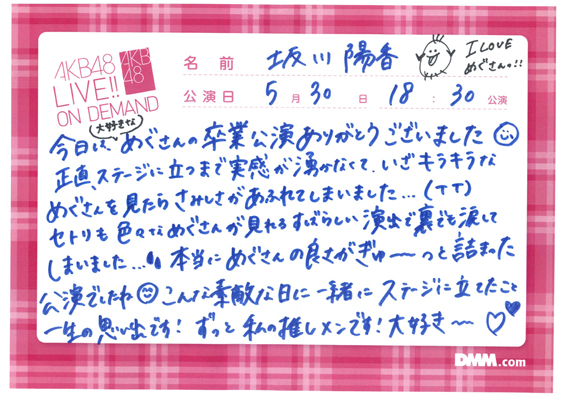 AKB48
LIVE!!
ON DEMAND
AKB
48
名前 坂川 陽香
I LOVE
めぐさんっ!!
公演日 5月30日 18:30公演
大好きな
今日は、めぐさんの卒業公演ありがとうございました
正直、ステージに立つまで実感が湧かなくて、いざキラキラな
めぐさんを見たらさみしさがあふれてしまいました…(TT)
セトリも色々なめぐさんが見れるすばらしい演出で裏でも涙して
しまいました… 本当にめぐさんの良さがぎゅ〜っと詰まった
公演でしたね こんな素敵な日に一緒にステージに立てたこと
一生の思い出です! ずっと私の推しメンです! 大好き〜♡♥
DMM.com